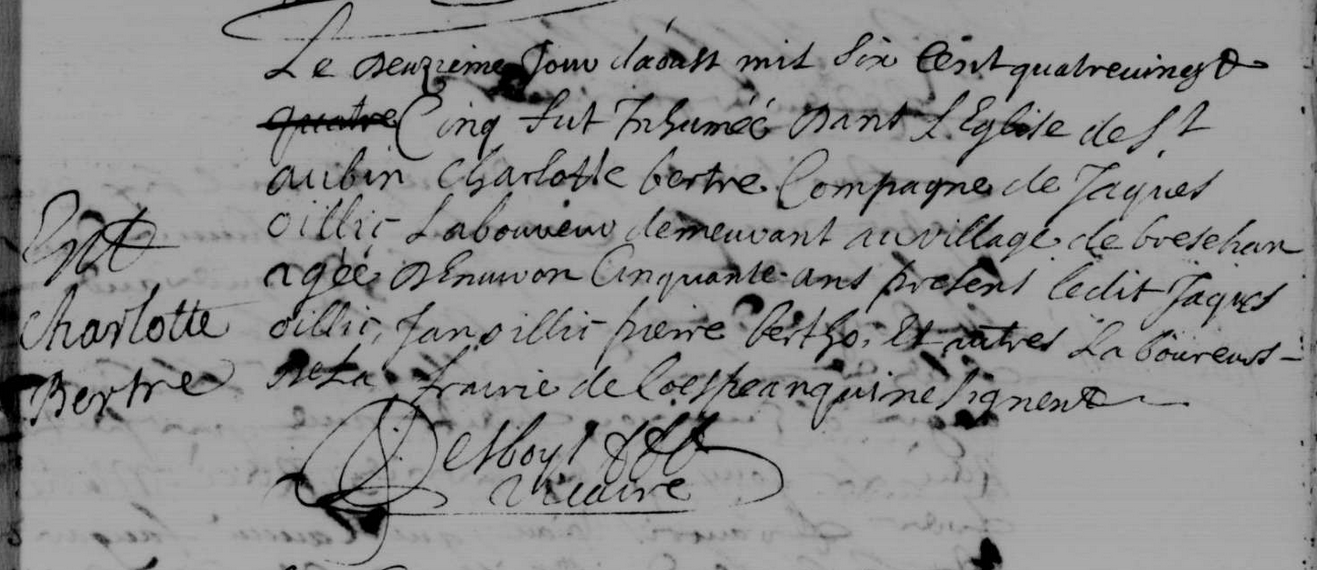 Le deuzieme jour d'aoust mil six cent quatrevingt
quatre Cinq fut Inhumée dans L'Eglise de St
aubin Charlotte bertre Compagne de Jaques
oillic Laboureur demeurant au village de
agéé d'Enuiron Cinquante ans present ledit Jaques
oillic, Jan oillic pierre bertho, Et autres Laboureurs
de La frairie de qui ne signent
Charlotte
Bertre
vicaire